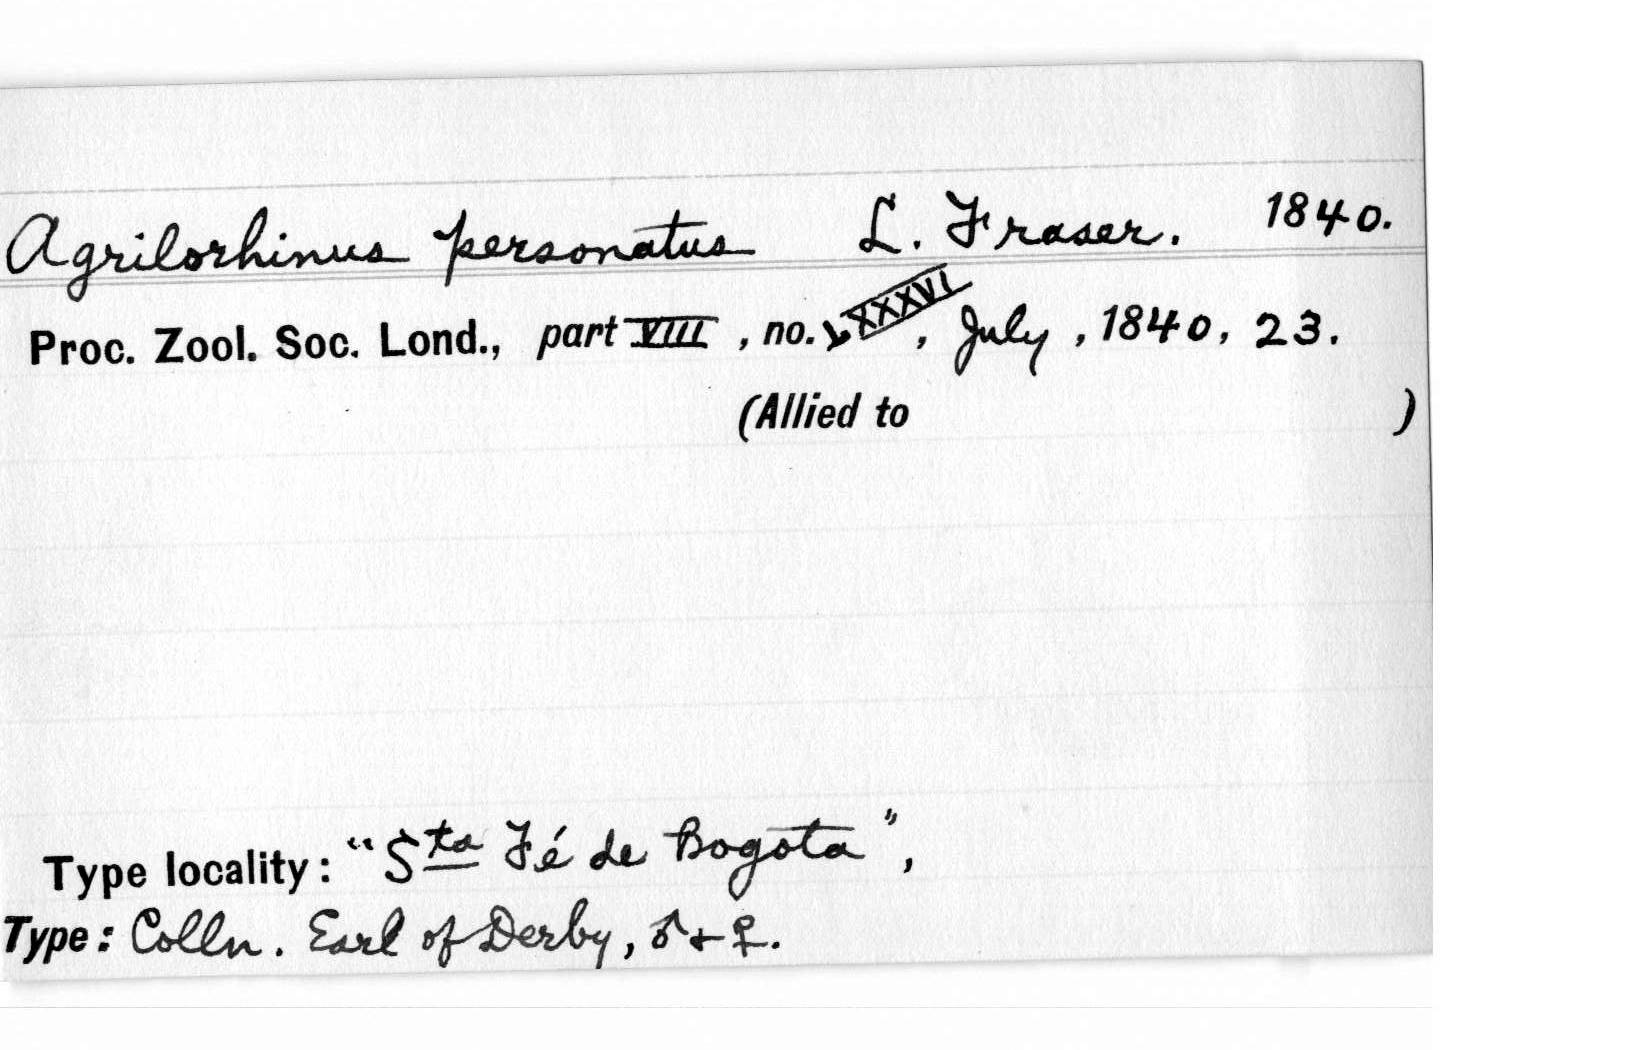 Agrilorhinus personatus L. Fraser. 1840.
Proc. Zool. Soc. Lond., part VIII, no. LXXXVI, July, 1840, 23.
(Allied to )
Type locality: "Sta Fé de Bogota",
Type: Colln. Earl of Derby, ♂ + ♀.